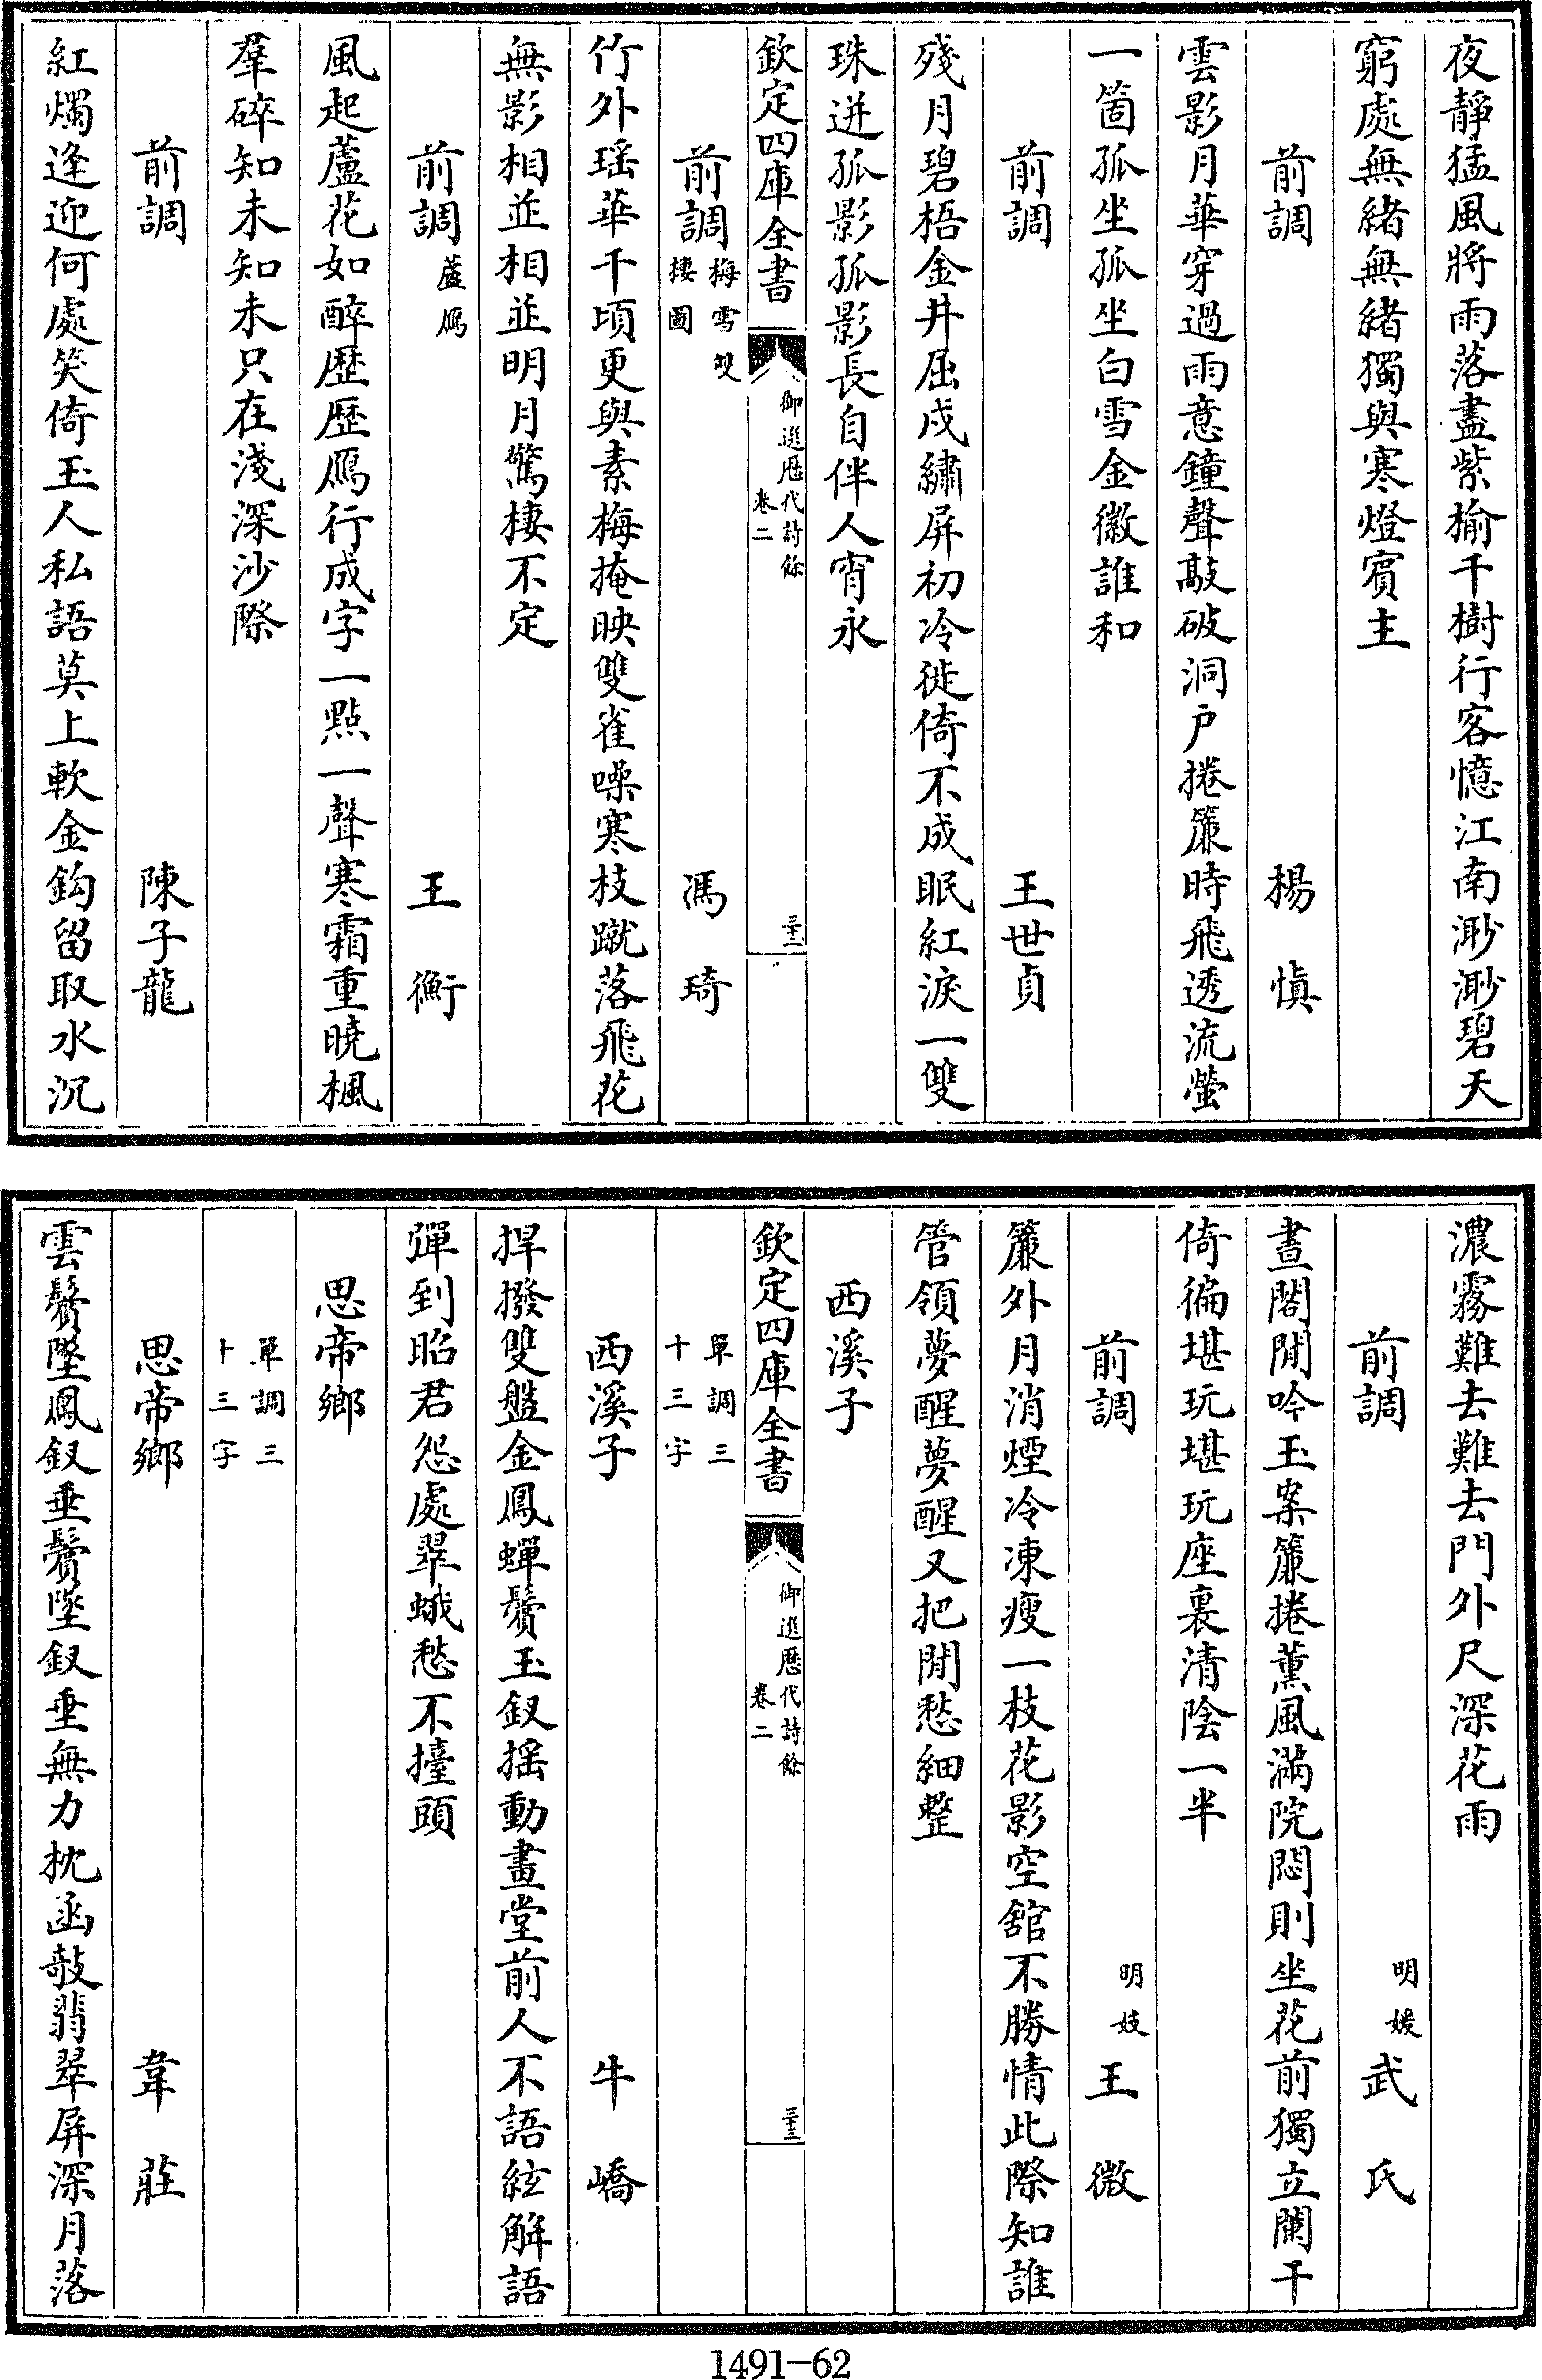 夜靜猛風將雨落盡紫榆千樹行客憶江南渺渺碧天
窮處無緒無緒獨與寒燈賓主
前調 楊慎
雲影月華穿過雨意鐘聲敲破洞戶捲簾時飛透流螢
一箇孤坐孤坐白雪金徽誰和
前調 王世貞
殘月碧梧金井屈戍繡屏初冷徙倚不成眠紅淚一雙
珠迸孤影孤影長自伴人宵永
欽定四庫全書 御選歷代詩餘 卷二 三十二
前調 梅雪雙棲圖 馮琦
竹外瑶華千頃更與素梅掩映雙雀噪寒枝蹴落飛花
無影相並相並明月驚棲不定
前調 蘆鴈 王衡
風起蘆花如醉歷歷鴈行成字一點一聲寒霜重曉楓
羣碎知未知未只在淺深沙際
前調 陳子龍
紅燭逢迎何處笑倚玉人私語莫上軟金鈎留取水沉
濃霧難去難去門外尺深花雨
前調 明媛 武氏
晝閣閒吟玉案簾捲薫風滿院悶則坐花前獨立闌干
倚徧堪玩堪玩座裏清陰一半
前調 明妓 王微
簾外月消煙冷凍瘦一枝花影空舘不勝情此際知誰
管領夢醒夢醒又把閒愁細整
西溪子
欽定四庫全書 御選歷代詩餘 卷二 三十三
單調三十三字
西溪子 牛嶠
捍撥雙盤金鳳蟬鬢玉釵揺動畫堂前人不語絃解語
彈到昭君怨處翠蛾愁不擡頭
思帝鄉
單調三十三字
思帝鄉 韋莊
雲鬢墜鳳釵垂鬢墜釵垂無力枕函敧翡翠屏深月落
1491-62